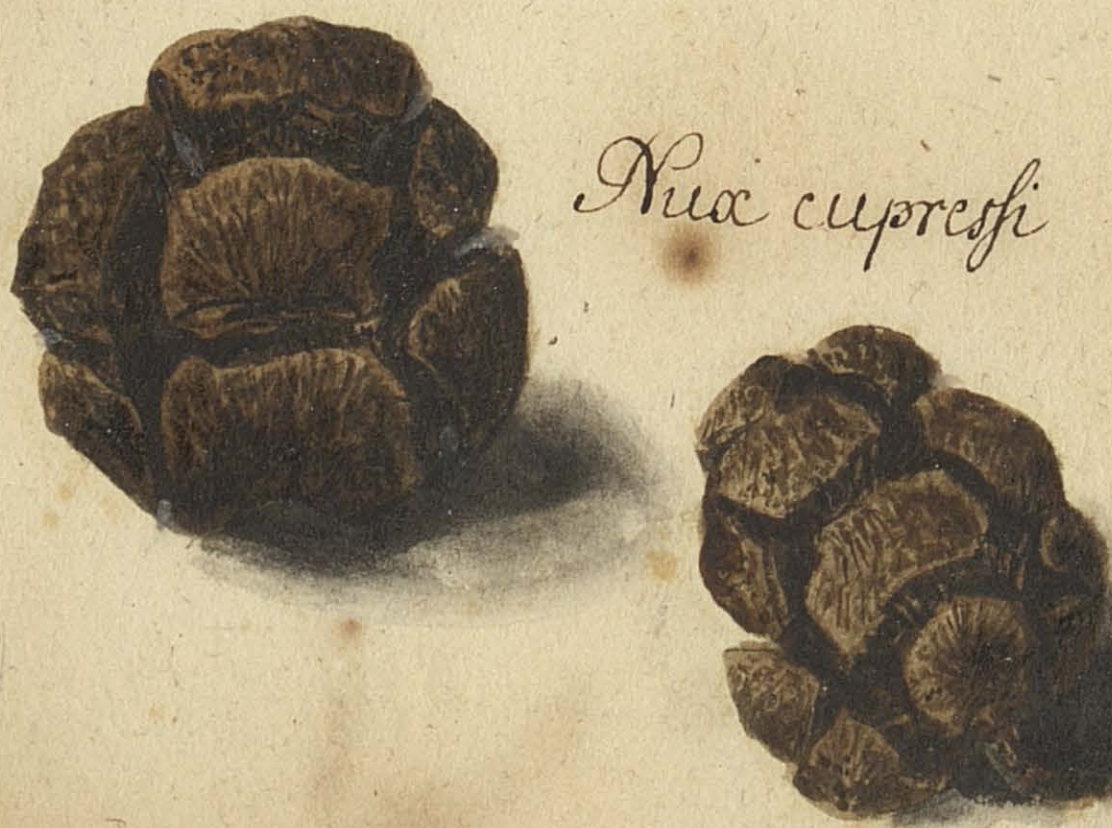 Nux cupreſsi